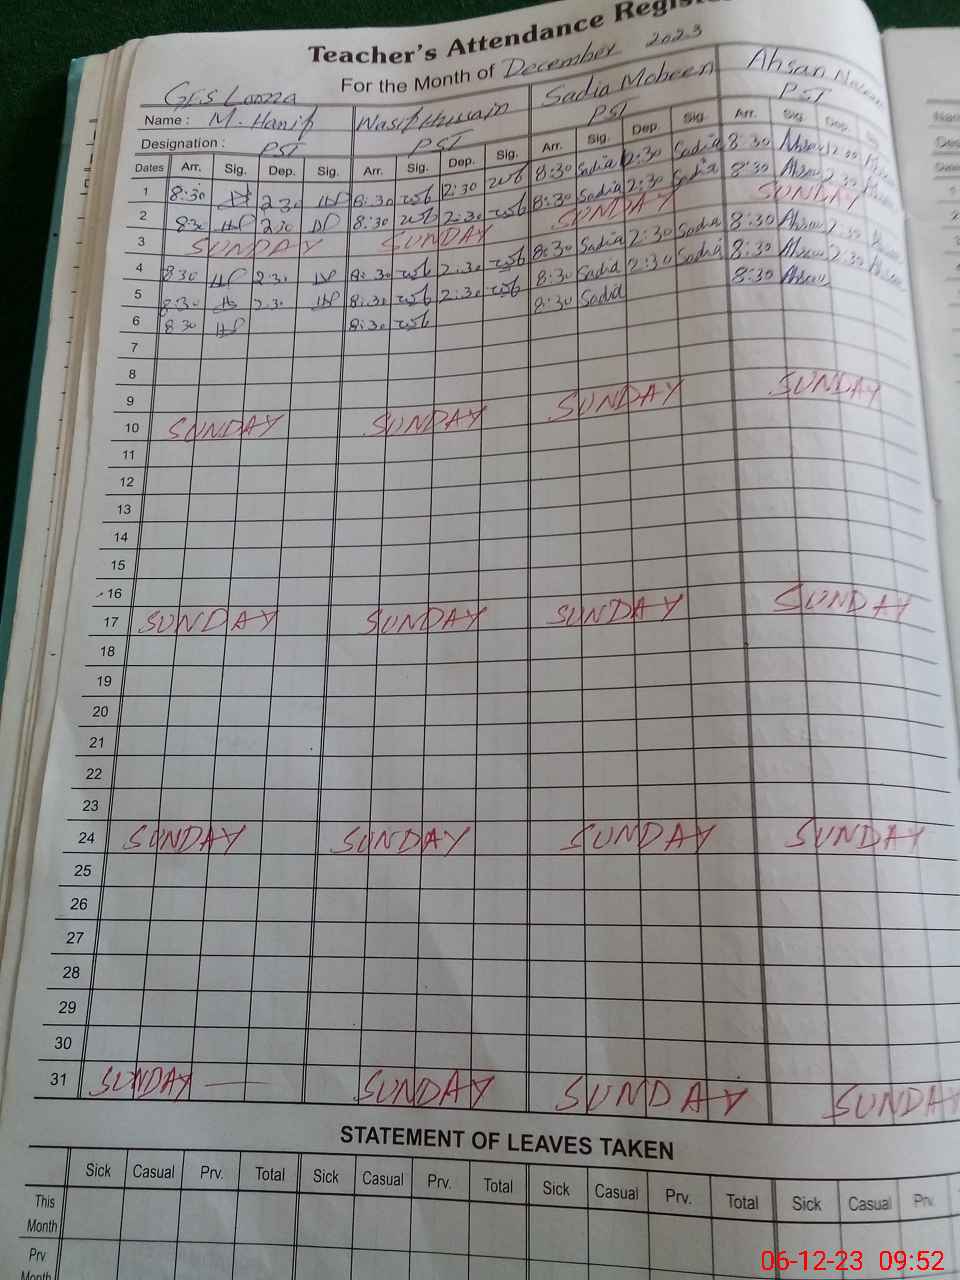 Teacher's Attendance Regis
For the Month of December 2023
Name : M. Hanif Sadia Mobeen Ahsan
Designation : PST PST PST PST
Dates Arr. Sig. Dep. Sig. Arr. Sig. Dep. Sig. Arr. Sig. Dep. Sig. Arr. Sig. Dep.
1 8:30 2 30 8:30 2:30 8:30 Sadia 2:30 Sadia 8:30 Ahsan
2 830 2:30 8:30 2:30 8:30 Sadia 2:30 Sadia 8:30 Ahsan 2:30
3 SUNDAY SUNDAY SUNDAY SUNDAY
4 830 2:30 8:30 2:30 8:30 Sadia 2:30 Sadia 8:30 Ahsan 2:30
5 8:30 2:30 8:30 2:30 8:30 Sadia 2:30 Sadia 8:30 Ahsan 2:30
6 8:30 8:30 8:30 Sadia 8:30 Ahsan
7
8
9
10 SUNDAY SUNDAY SUNDAY SUNDAY
11
12
13
14
15
16
17 SUNDAY SUNDAY SUNDAY SUNDAY
18
19
20
21
22
23
24 SUNDAY SUNDAY SUNDAY SUNDAY
25
26
27
28
29
30
31 SUNDAY SUNDAY SUNDAY SUNDAY
STATEMENT OF LEAVES TAKEN
Sick Casual Prv. Total Sick Casual Prv. Total Sick Casual Prv. Total Sick Casual Prv.
This
Month
Prv
Month
06-12-23 09:52